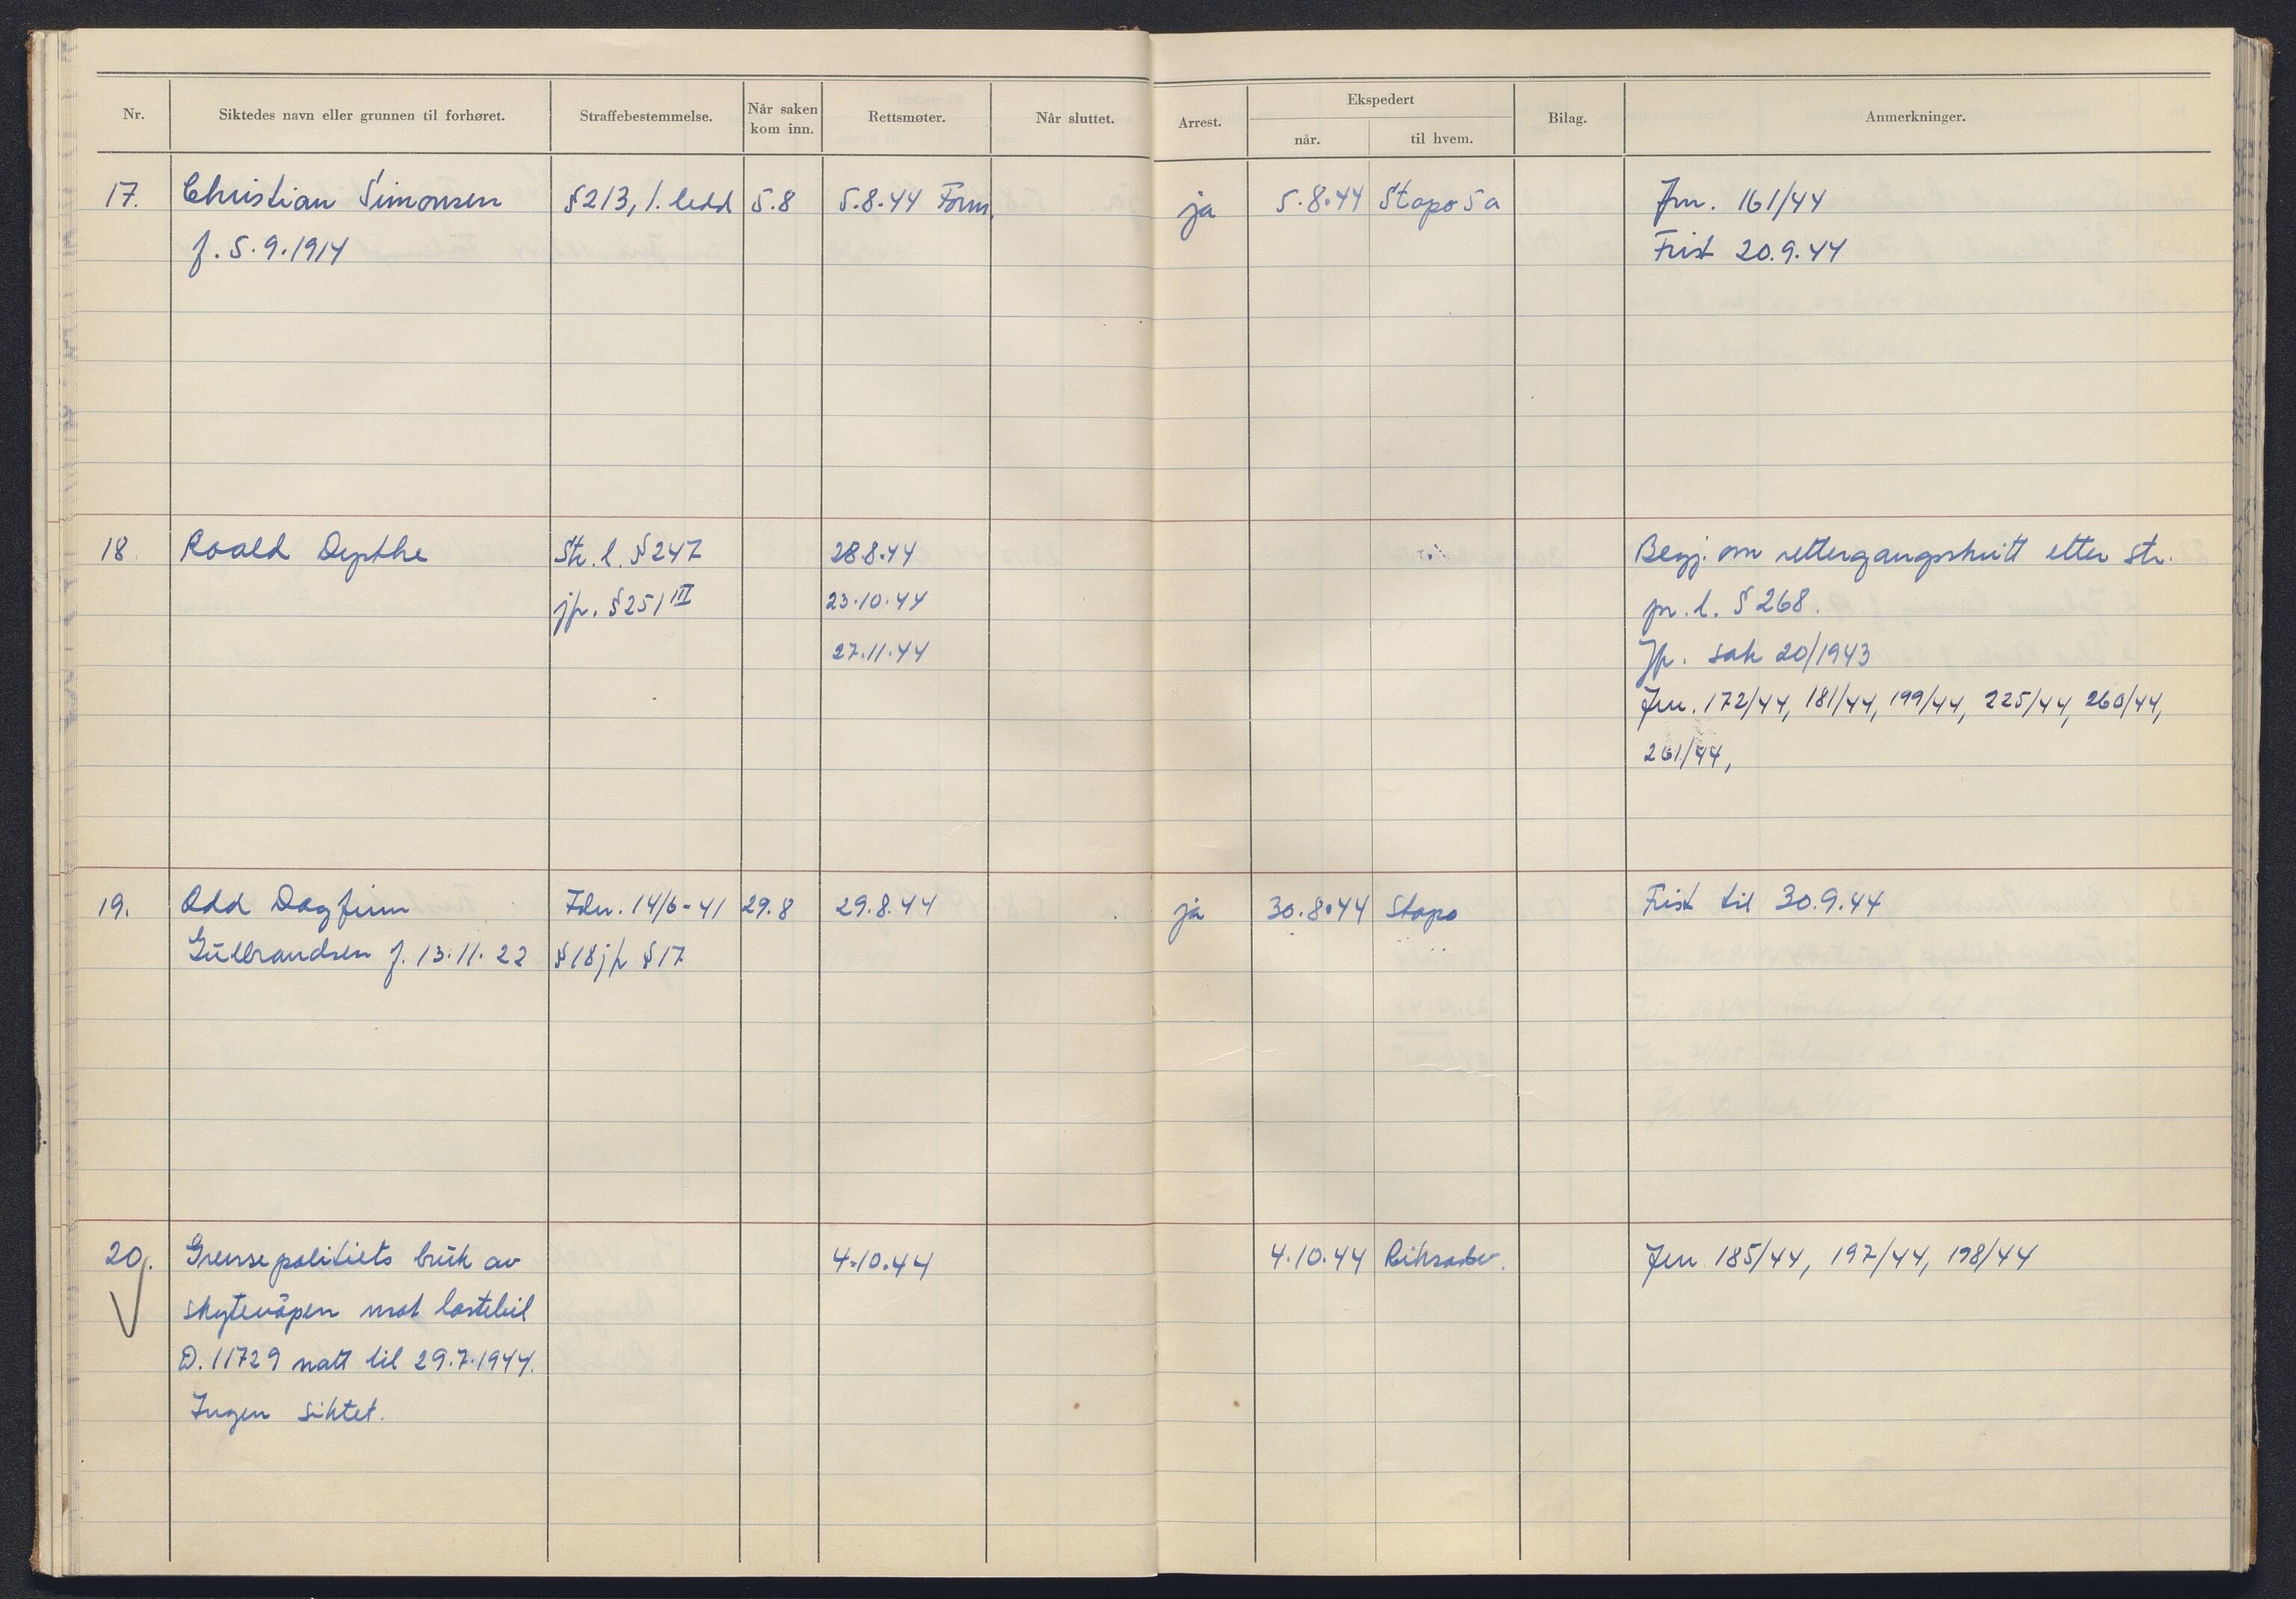 Nr. Siktedes navn eller grunnen til forhøret. Straffebestemmelse. Når saken kom inn. Rettsmøter. Når sluttet. Arrest. Ekspedert når. til hvem. Bilag. Anmerkninger.
17. Christian Simonsen §213, 1. ledd 5.8 5.8.44 Form. ja 5.8.44 Stapo 5a Jnr. 161/44
f. 5.9.1914 Frist 20.9.44
18. Roald Dypthe Str. l. §247 28.8.44 Begj. om rettergangsskritt etter str.
jfr. §251 III 23.10.44 pr. l. § 268.
27.11.44 Jfr. sak 20/1943
Jnr. 172/44, 181/44, 199/44, 225/44, 260/44,
261/44,
19. Odd Dagfinn Fdn. 14/6-41 29.8 29.8.44 ja 30.8.44 Stapo Frist til 30.9.44
Gulbrandsen f. 13.11.22 §18 jfr §17
20. Grensepolitiets bruk av 4.10.44 4.10.44 Riksadv. Jnr 185/44, 197/44, 198/44
skytevåpen mot lastebil
D. 11729 natt til 29.7.1944.
Ingen siktet.